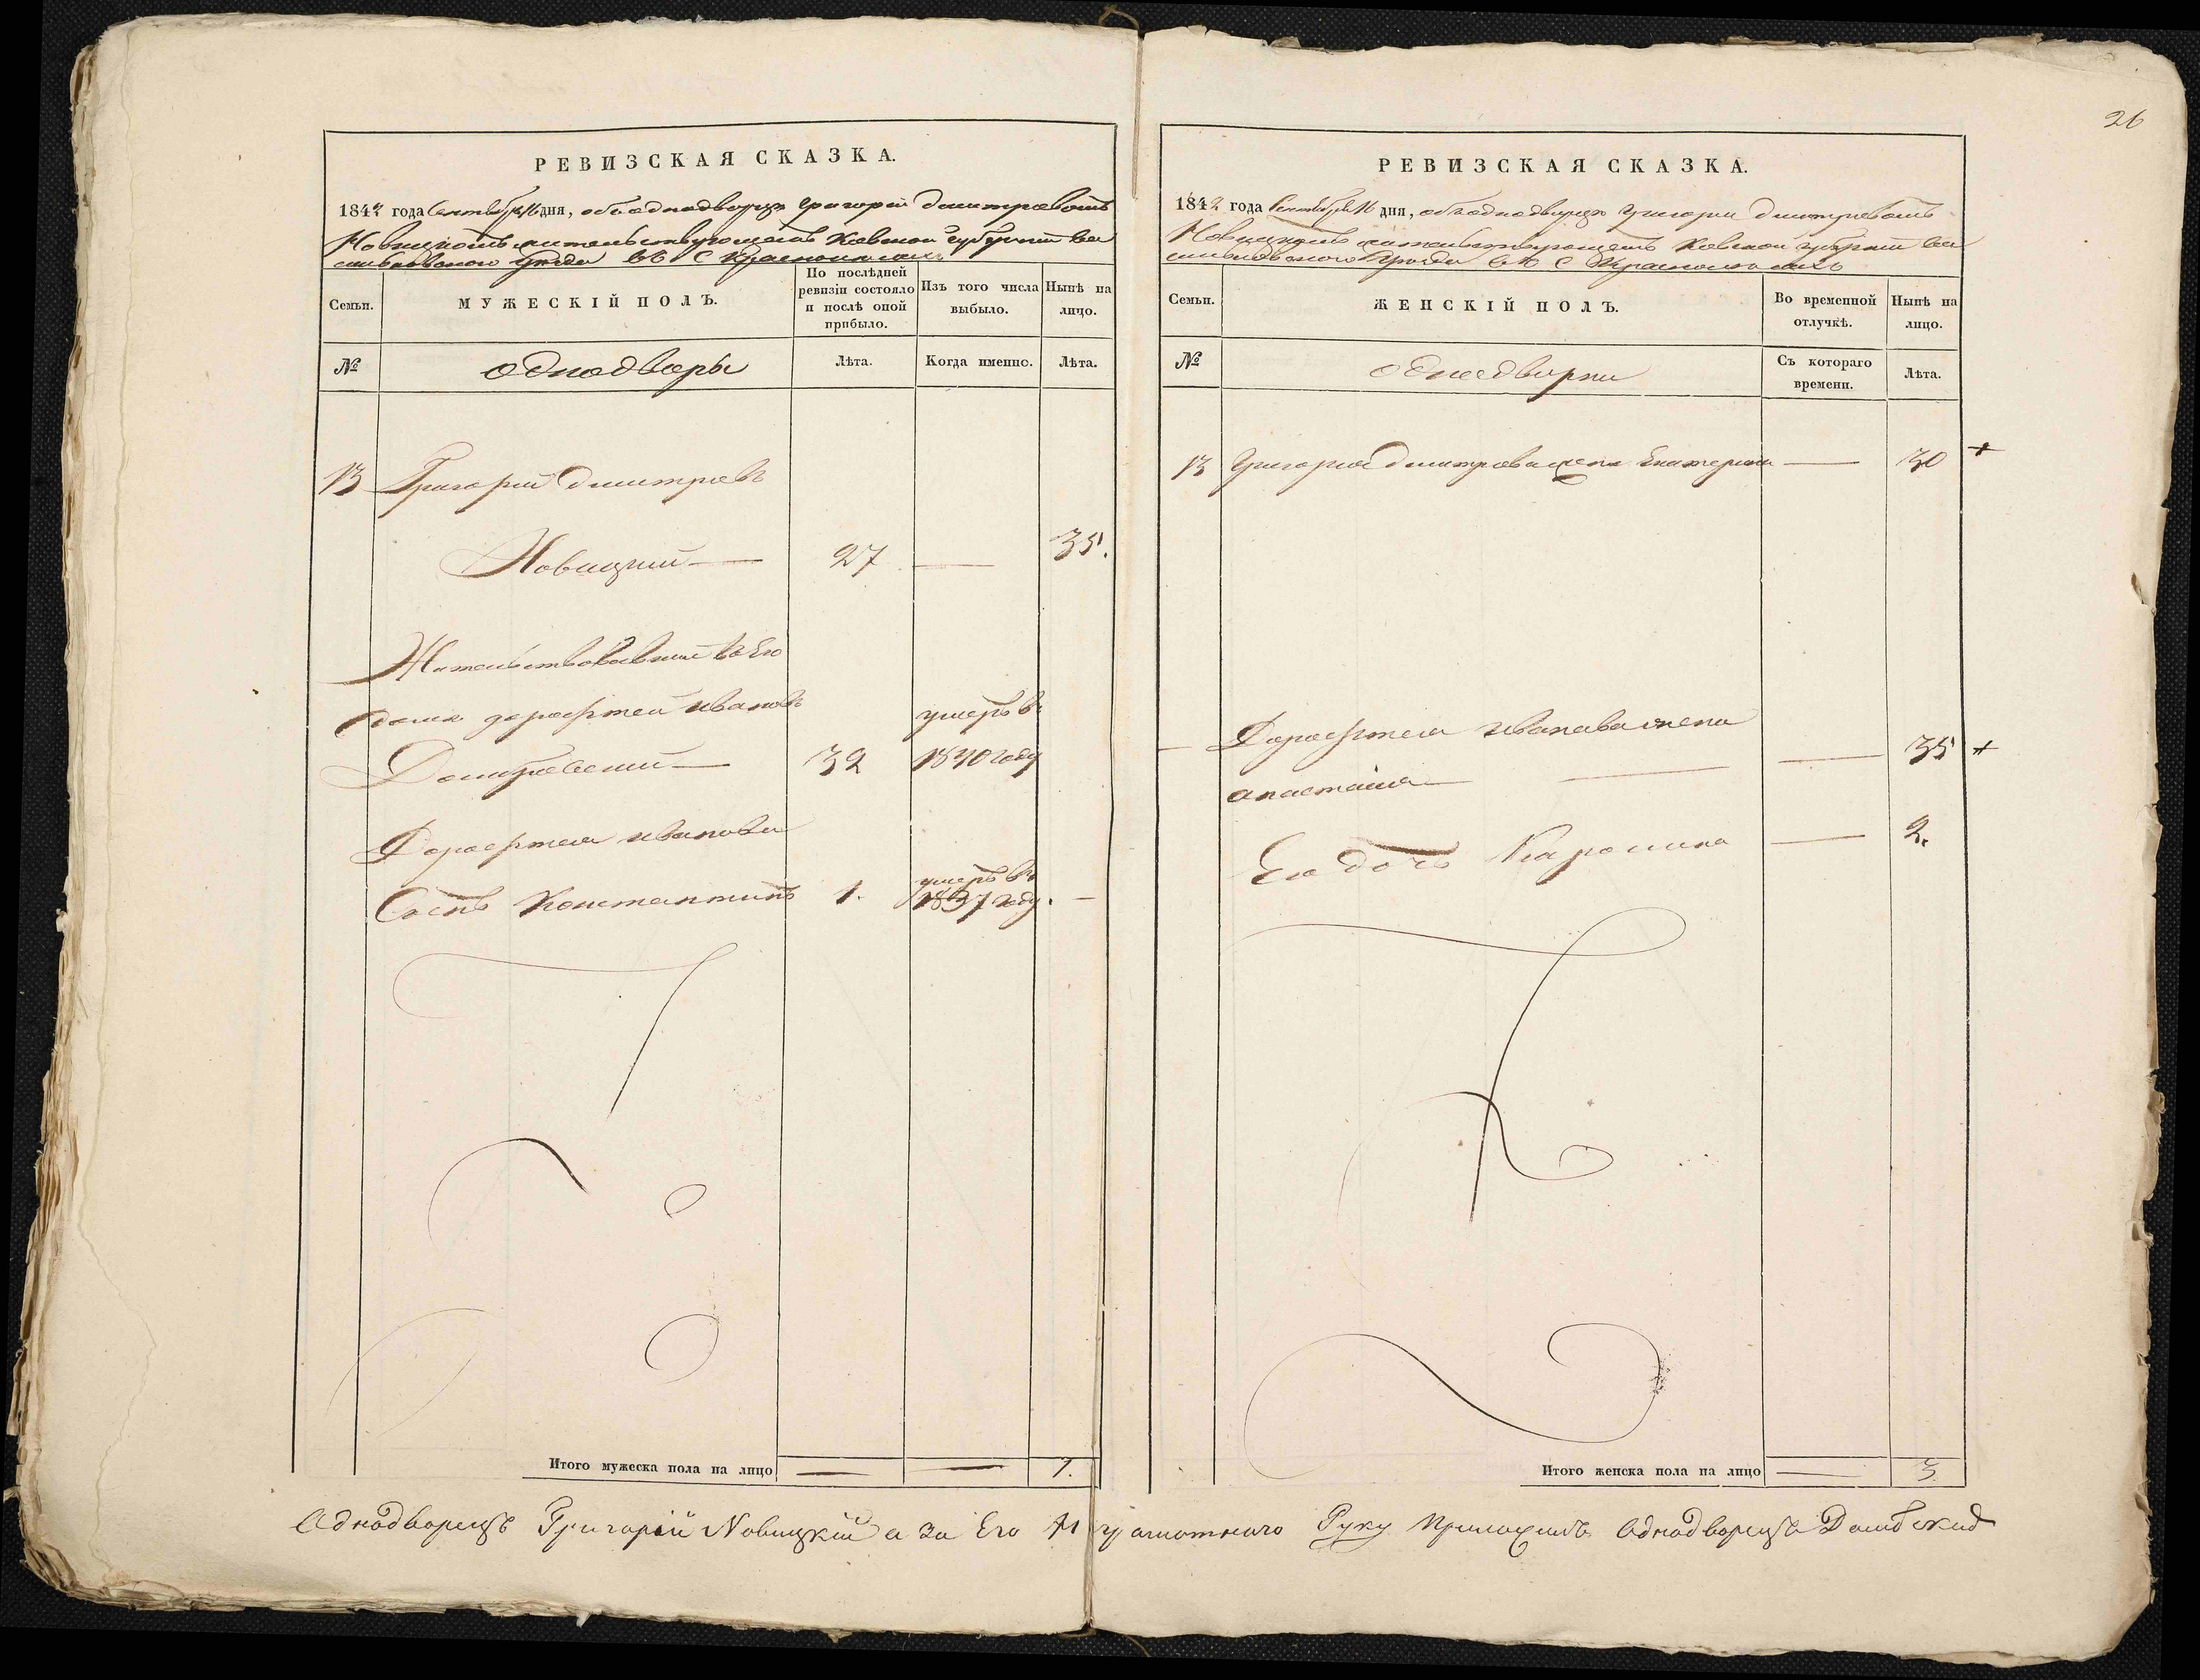 26
РЕВИЗСКАЯ СКАЗКА.
1842 года Сентября 16 дня, объ однодворцѣ Григорій Дмитревомъ
Новицкомъ жительствующемъ Кіевской губерніи Ва
сильковскаго уезда въ С
Семьи.
МУЖЕСКІЙ ПОЛЪ.
По послѣдней
ревизіи состояло
и послѣ оной
прибыло.
Изъ того числа
выбыло.
Нынѣ на
лицо.
№
однодворы
Лѣта.
Когда именно.
Лѣта.
13 Григорій Дмитревъ
Новицкий — 27 — 35.
Жительствовавший въ Его
доме дорофтей Ивановъ умеръ въ
32 1840 году
Дорофтея иванова
Сынъ Константинъ 1. умеръ въ 1837 году. —
Итого мужеска пола на лицо — — 1.
РЕВИЗСКАЯ СКАЗКА.
1842 года Сентября 16 дня, объ однодворце Григори Дмитревомъ
Новицкомъ жительствующемъ Кіевской губерніи Ва
сильковскаго уезда въ С
Семьи.
ЖЕНСКІЙ ПОЛЪ.
Во временной
отлучкѣ.
Нынѣ на
лицо.
№
однодворки
Съ котораго
времени.
Лѣта.
13 Григория Дмитрева жена Екатерина — 30 +
— Дорофтея Иванава жена
анастасия — — — 35 +
Ея дочь Каролина — 2.
Итого женска пола на лицо — 3
Аднодворецъ Григорій Новицкій а за Его Не грамотнаго Руку Приложилъ Аднодворецъ